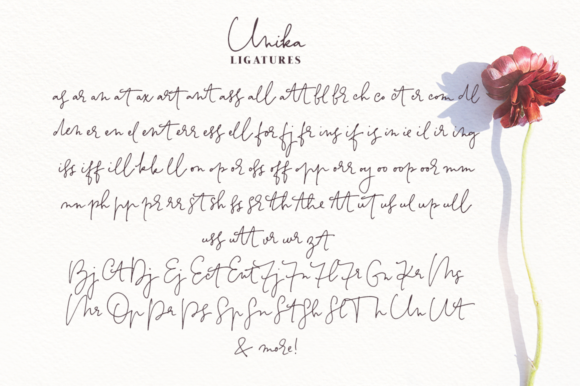 Unika
LIGATURES
as ar an at ax art ant ass all att bl br ch co ct er com dl
den er en el ent err ess ell for fj fr ing if is in ie il ir ing
iss iff ill kk ll on op or oss off opp orr oy oo oop oor mm
nn ph pp pr rr st sh ss sr th the tt ut us ul up ull
uss utt vr wr zt
Bj Ct Dj Ej Ect Ent Fj Fn Fl Fr Gn Kr Ms
Mr Op Pr Ps Sp Sn St Sh Sl Th Un Ut
& more!